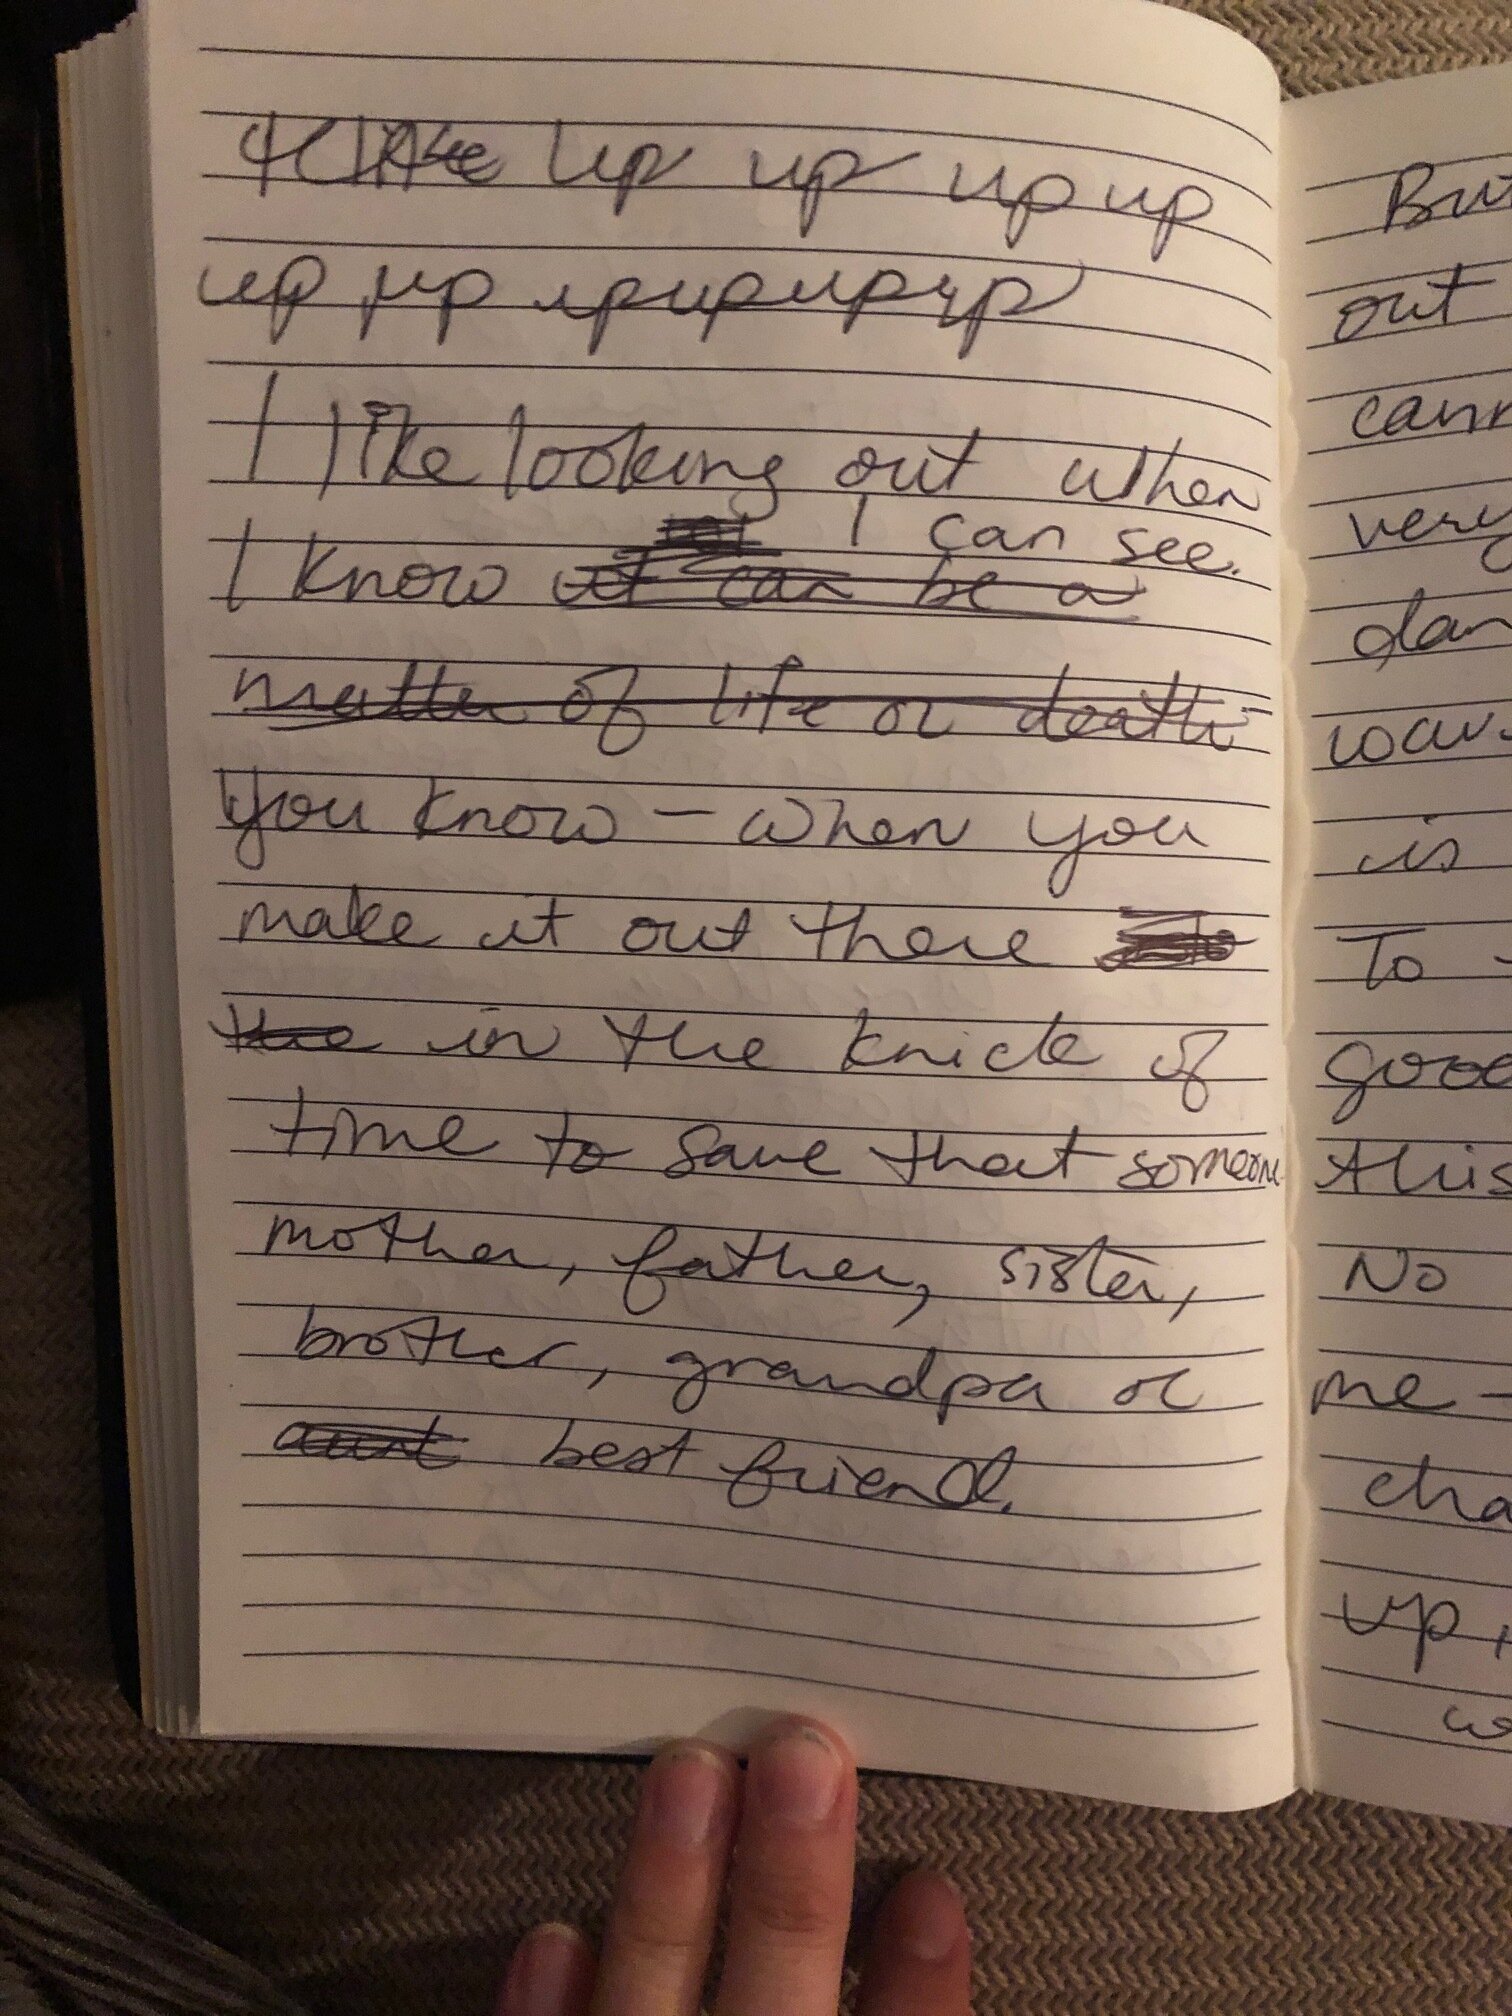 I like up up up up
up up upupupupup
I like looking out when
I know I can see.
it can be a
matter of life or death–
you know – when you
make it out there
the in the knick of
time to save that someone
mother, father, sister,
brother, grandpa or
aunt best friend.
But
out
very
is
To -
good
this
No
me -
up,